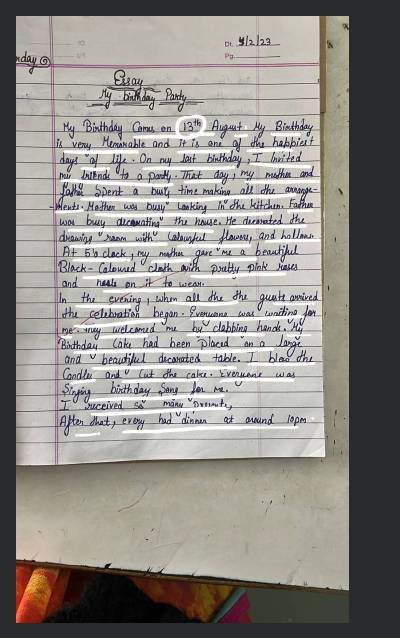 nday
Dt. 4/2/23
Pg.
Essay
My birthday Party
My Birthday Comes on 13th August My Birthday
is very Memorable and it is one of the happiest
days of life. On my last birthday, I Invited
my friends to a party. That day, my mother and
father Spent a busy time making all the arrange-
-ments. Mother was busy Cooking in the kitchen. Father
was busy decorating the house. He decorated the
drawing room with Colourful flowers, and
At 5'o clock, my mother gave me a beautiful
Black-Coloured cloth with pretty pink roses
and on it to wear.
In the evening, when all the the guests arrived
the celebration began. Everyone was waiting for
me. They welcomed me by clapping hands. My
Birthday Cake had been placed on a large
and beautiful decorated table. I blow the
Candles and Cut the cake. Everyone was
Singing birthday Song for me.
I received so many Presents,
After that, every had dinner at around 10pm